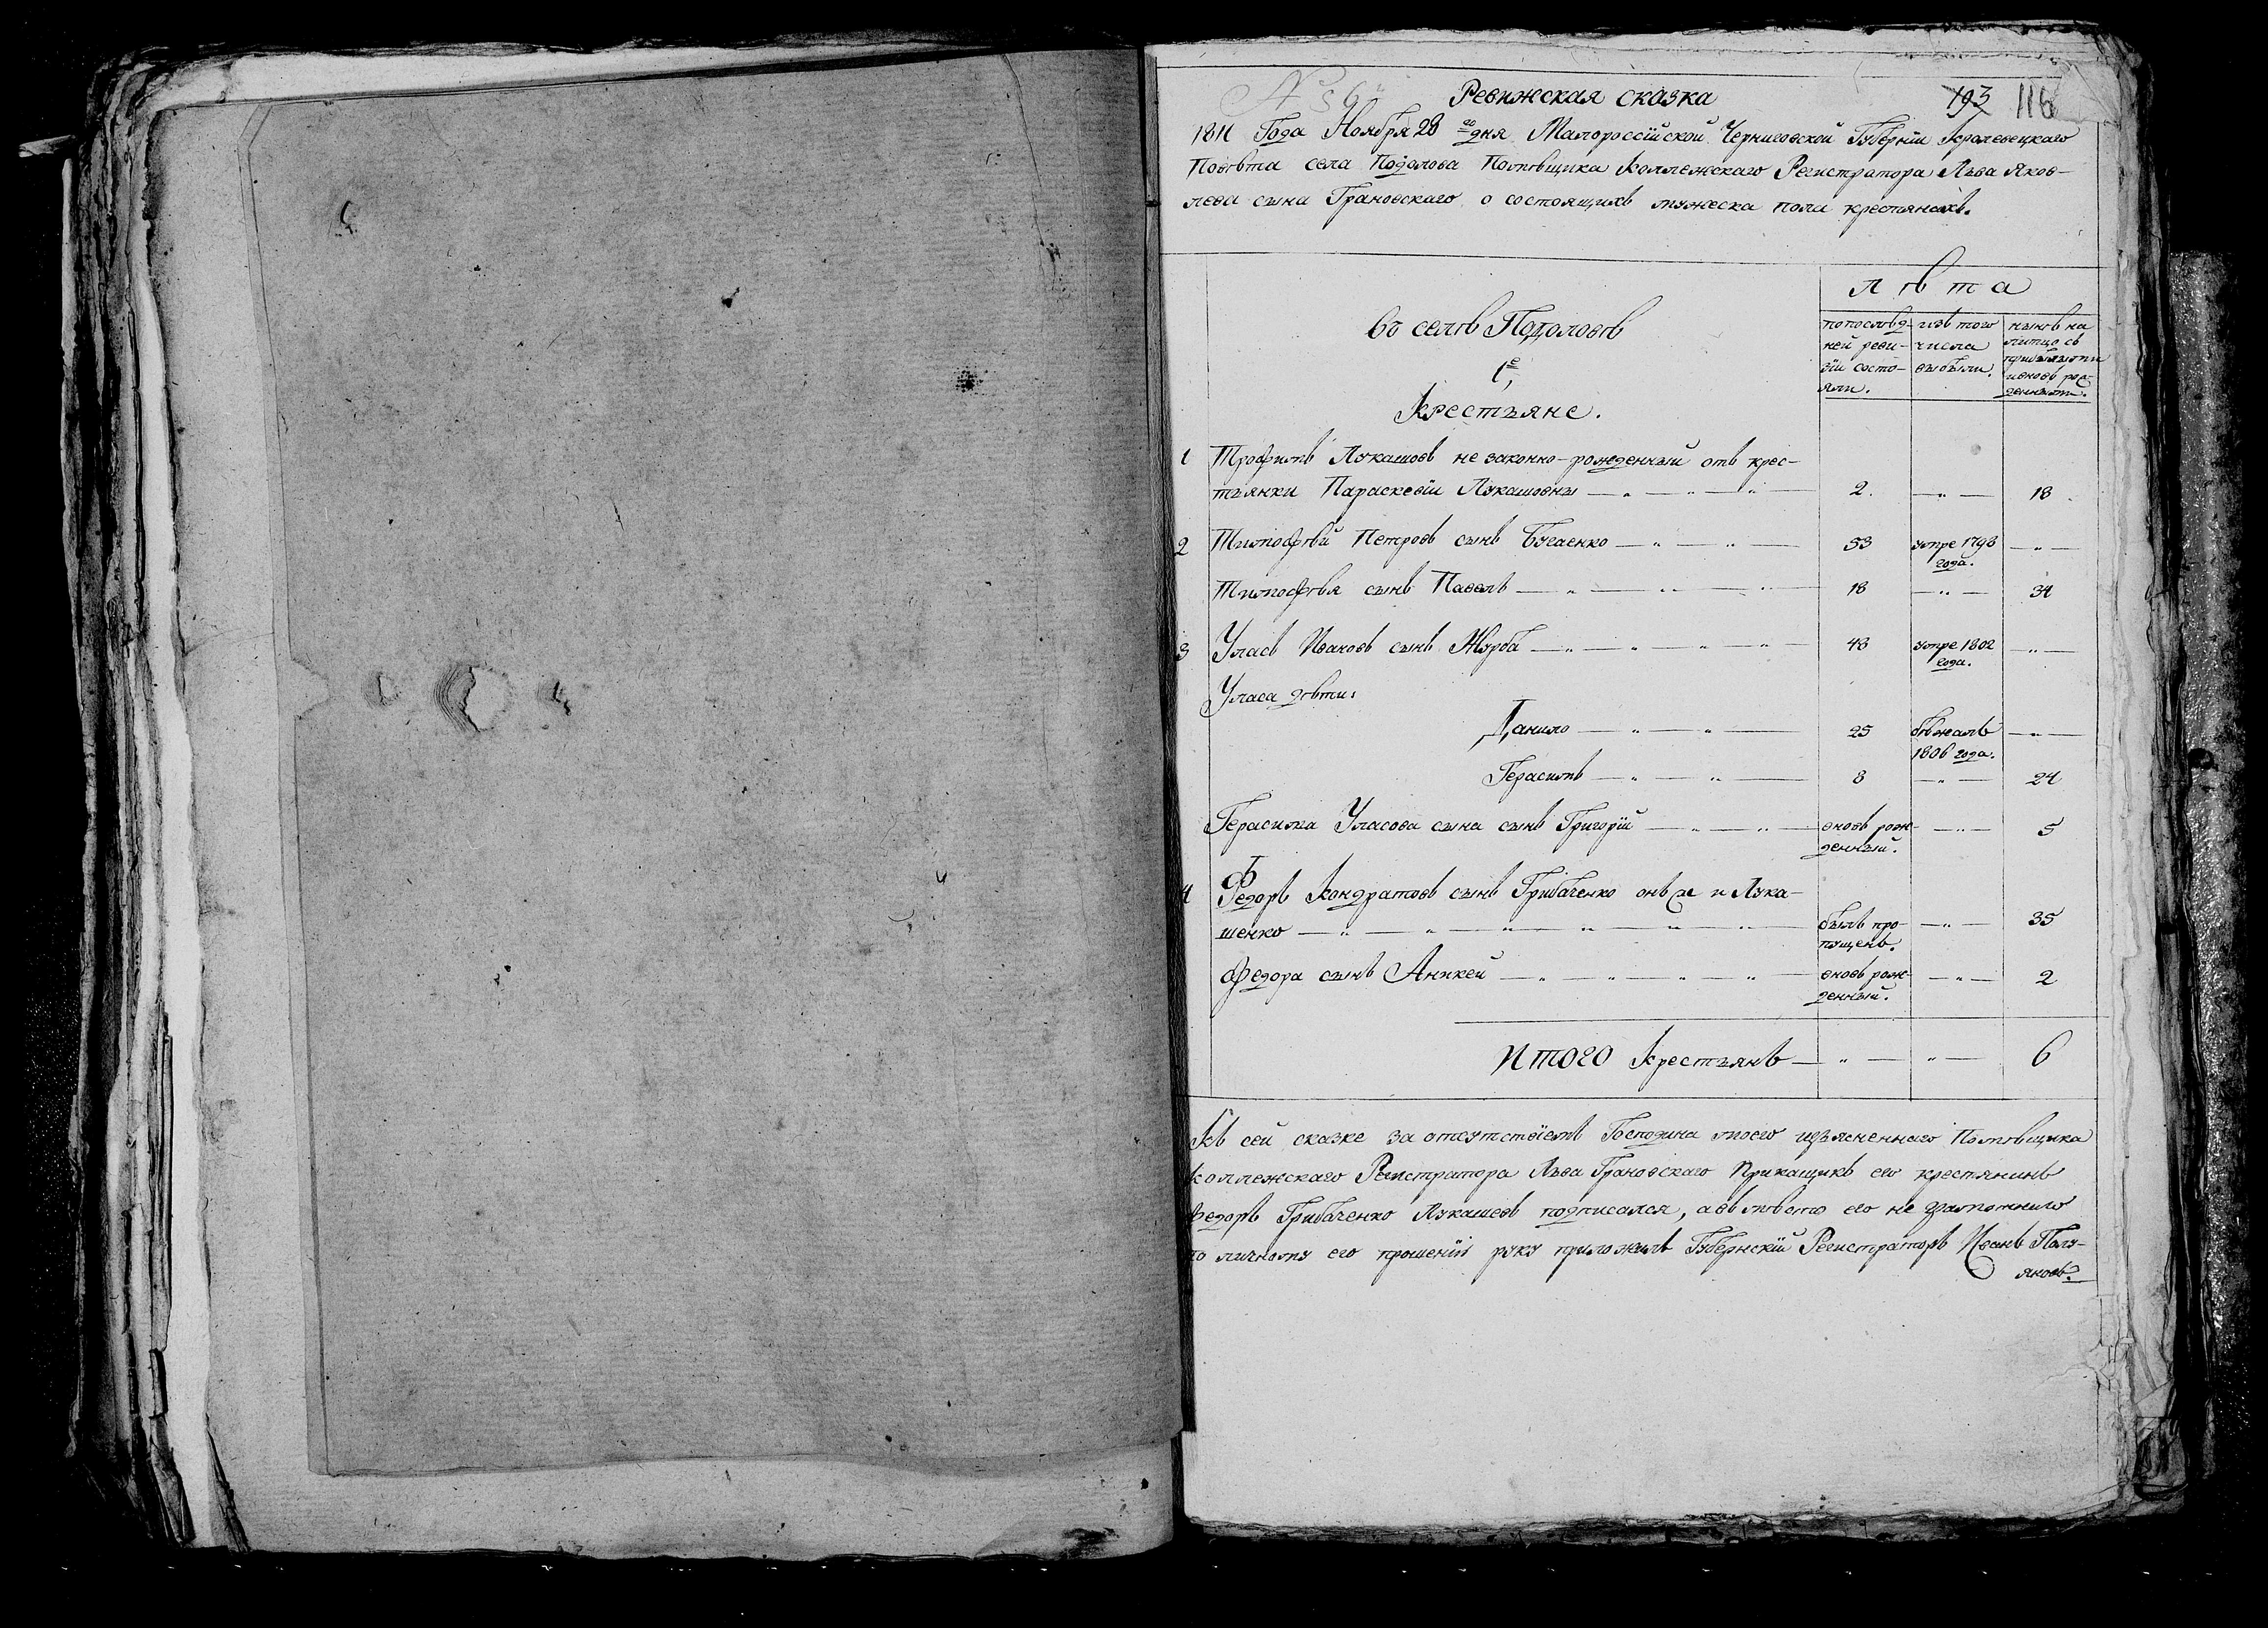 Ревижская сказка
193 116
1811 Года Ноября 28 го дня Малороссїйской Черниговской Губернїи Кролевецкаго
Повѣта села Подолова Помѣщика Коллежскаго Регистратора Льва Яков-
лева сына Грановскаго о состоящихъ мужеска пола крестьянахъ.
Лѣта
Въ селѣ Подоловѣ
по послѣд-
ней реви-
зїи состо-
яли.
изъ того
числа
выбыли.
нынѣ на
лицо съ
прибылыми
и вновь рож-
денными.
1е,
Крестьяне.
1 Трофимъ Лукашовъ не законно-рожденный отъ крес-
тьянки Параскевїи Лукашовны — „ — „ — „ — 2. — „ — 18
2 Тимофѣй Петровъ сынъ Бугаенко — „ — „ — 53 умре 1793
года. — „ —
Тимофѣя сынъ Павелъ — „ — „ — „ — 18 — „ — 34
3 Уласъ Ивановъ сынъ Журба — „ — „ — „ — „ — 48 умре 1802
года. — „ —
Уласа дѣти:
Данило — „ — „ — 25 бѣжалъ
1806 года. — „ —
Герасимъ — „ — „ — 8 — „ — 24
Герасима Уласова сына сынъ Григорїй — „ — „ — вновь рож-
денный. — „ — 5
4 Федоръ Кондратовъ сынъ Грибаченко онъ же и Лука-
шенко — „ — „ — „ — „ — „ — „ — былъ про-
пущенъ. — „ — 35
Федора сынъ Аникей — „ — „ — „ — „ — вновь рож-
денный. — „ — 2
Итого Крестьянъ — „ — „ — 6
Къ сей сказке за отсутствїемъ Господина моего изъясненнаго Помѣщика
Коллежскаго Регистратора Льва Грановскаго Прикащикъ его крестянинъ
Федоръ Грибаченко Лукашевъ подписался, а вмѣсто его не грамотного
по личному его прошенїю руку приложилъ Губернскїй Регистраторъ Иванъ Полу-
яновъ.